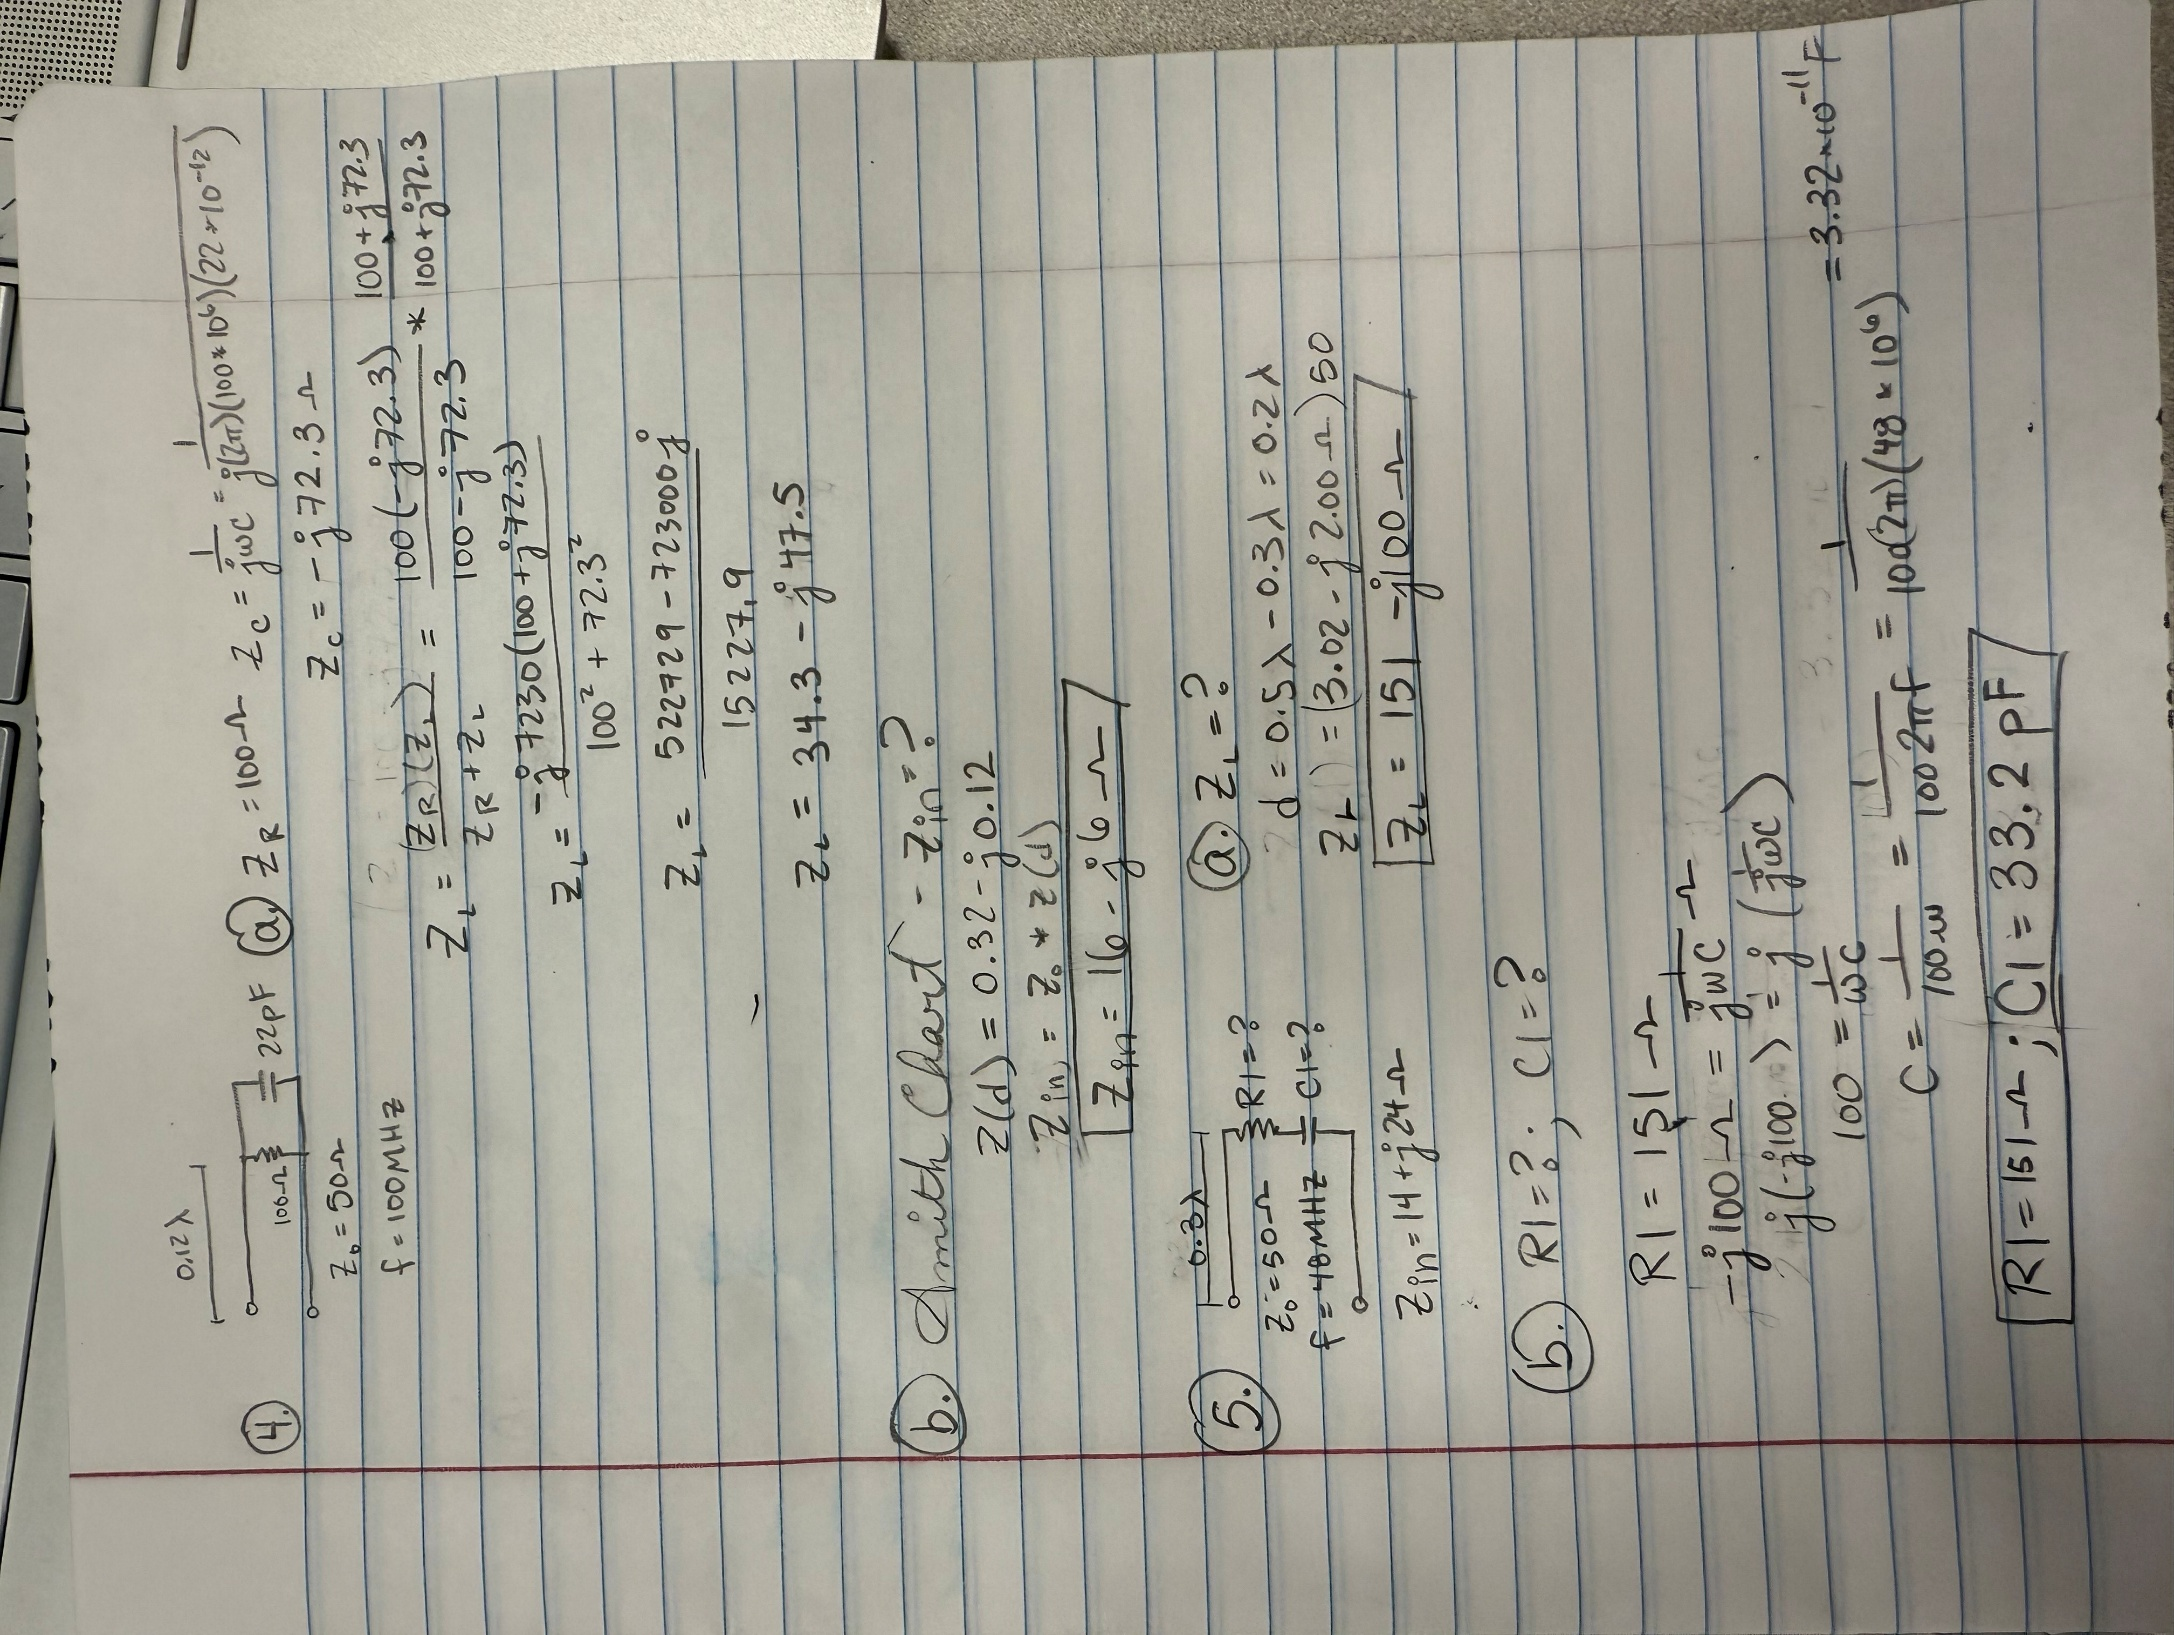 4.
0.12λ
100Ω
22pF
Z₀ = 50Ω
f = 100MHz
a. Z_R = 100Ω Z_C = 1/jωC = 1/(j(2π)(100*10⁶)(22*10⁻¹²))
Z_C = -j72.3Ω
Z_L = (Z_R)(Z_L)/(Z_R + Z_L) = 100(-j72.3)/(100-j72.3) * (100+j72.3)/(100+j72.3)
Z_L = -j7230(100+j72.3)/(100² + 72.3²)
Z_L = (522729 - 723000j)/15227.9
Z_L = 34.3 - j47.5
b. Smith Chart - Zin = ?
z(d) = 0.32 - j0.12
Zin = Z₀ * z(d)
Zin = 16 - j6Ω
5.
0.3λ
Z₀ = 50Ω
R1 = ?
f = 48MHz
C1 = ?
Zin = 14 + j24Ω
a. Z_L = ?
d = 0.5λ - 0.3λ = 0.2λ
Z_L = (3.02 - j2.00Ω)50
Z_L = 151 - j100Ω
b. R1 = ?; C1 = ?
R1 = 151Ω
-j100Ω = 1/jωC Ω
j(-j100) = j(1/jωC)
100 = 1/ωC
C = 1/100ω = 1/100 2πf = 1/100(2π)(48*10⁶) = 3.32*10⁻¹¹F
R1 = 151Ω; C1 = 33.2pF